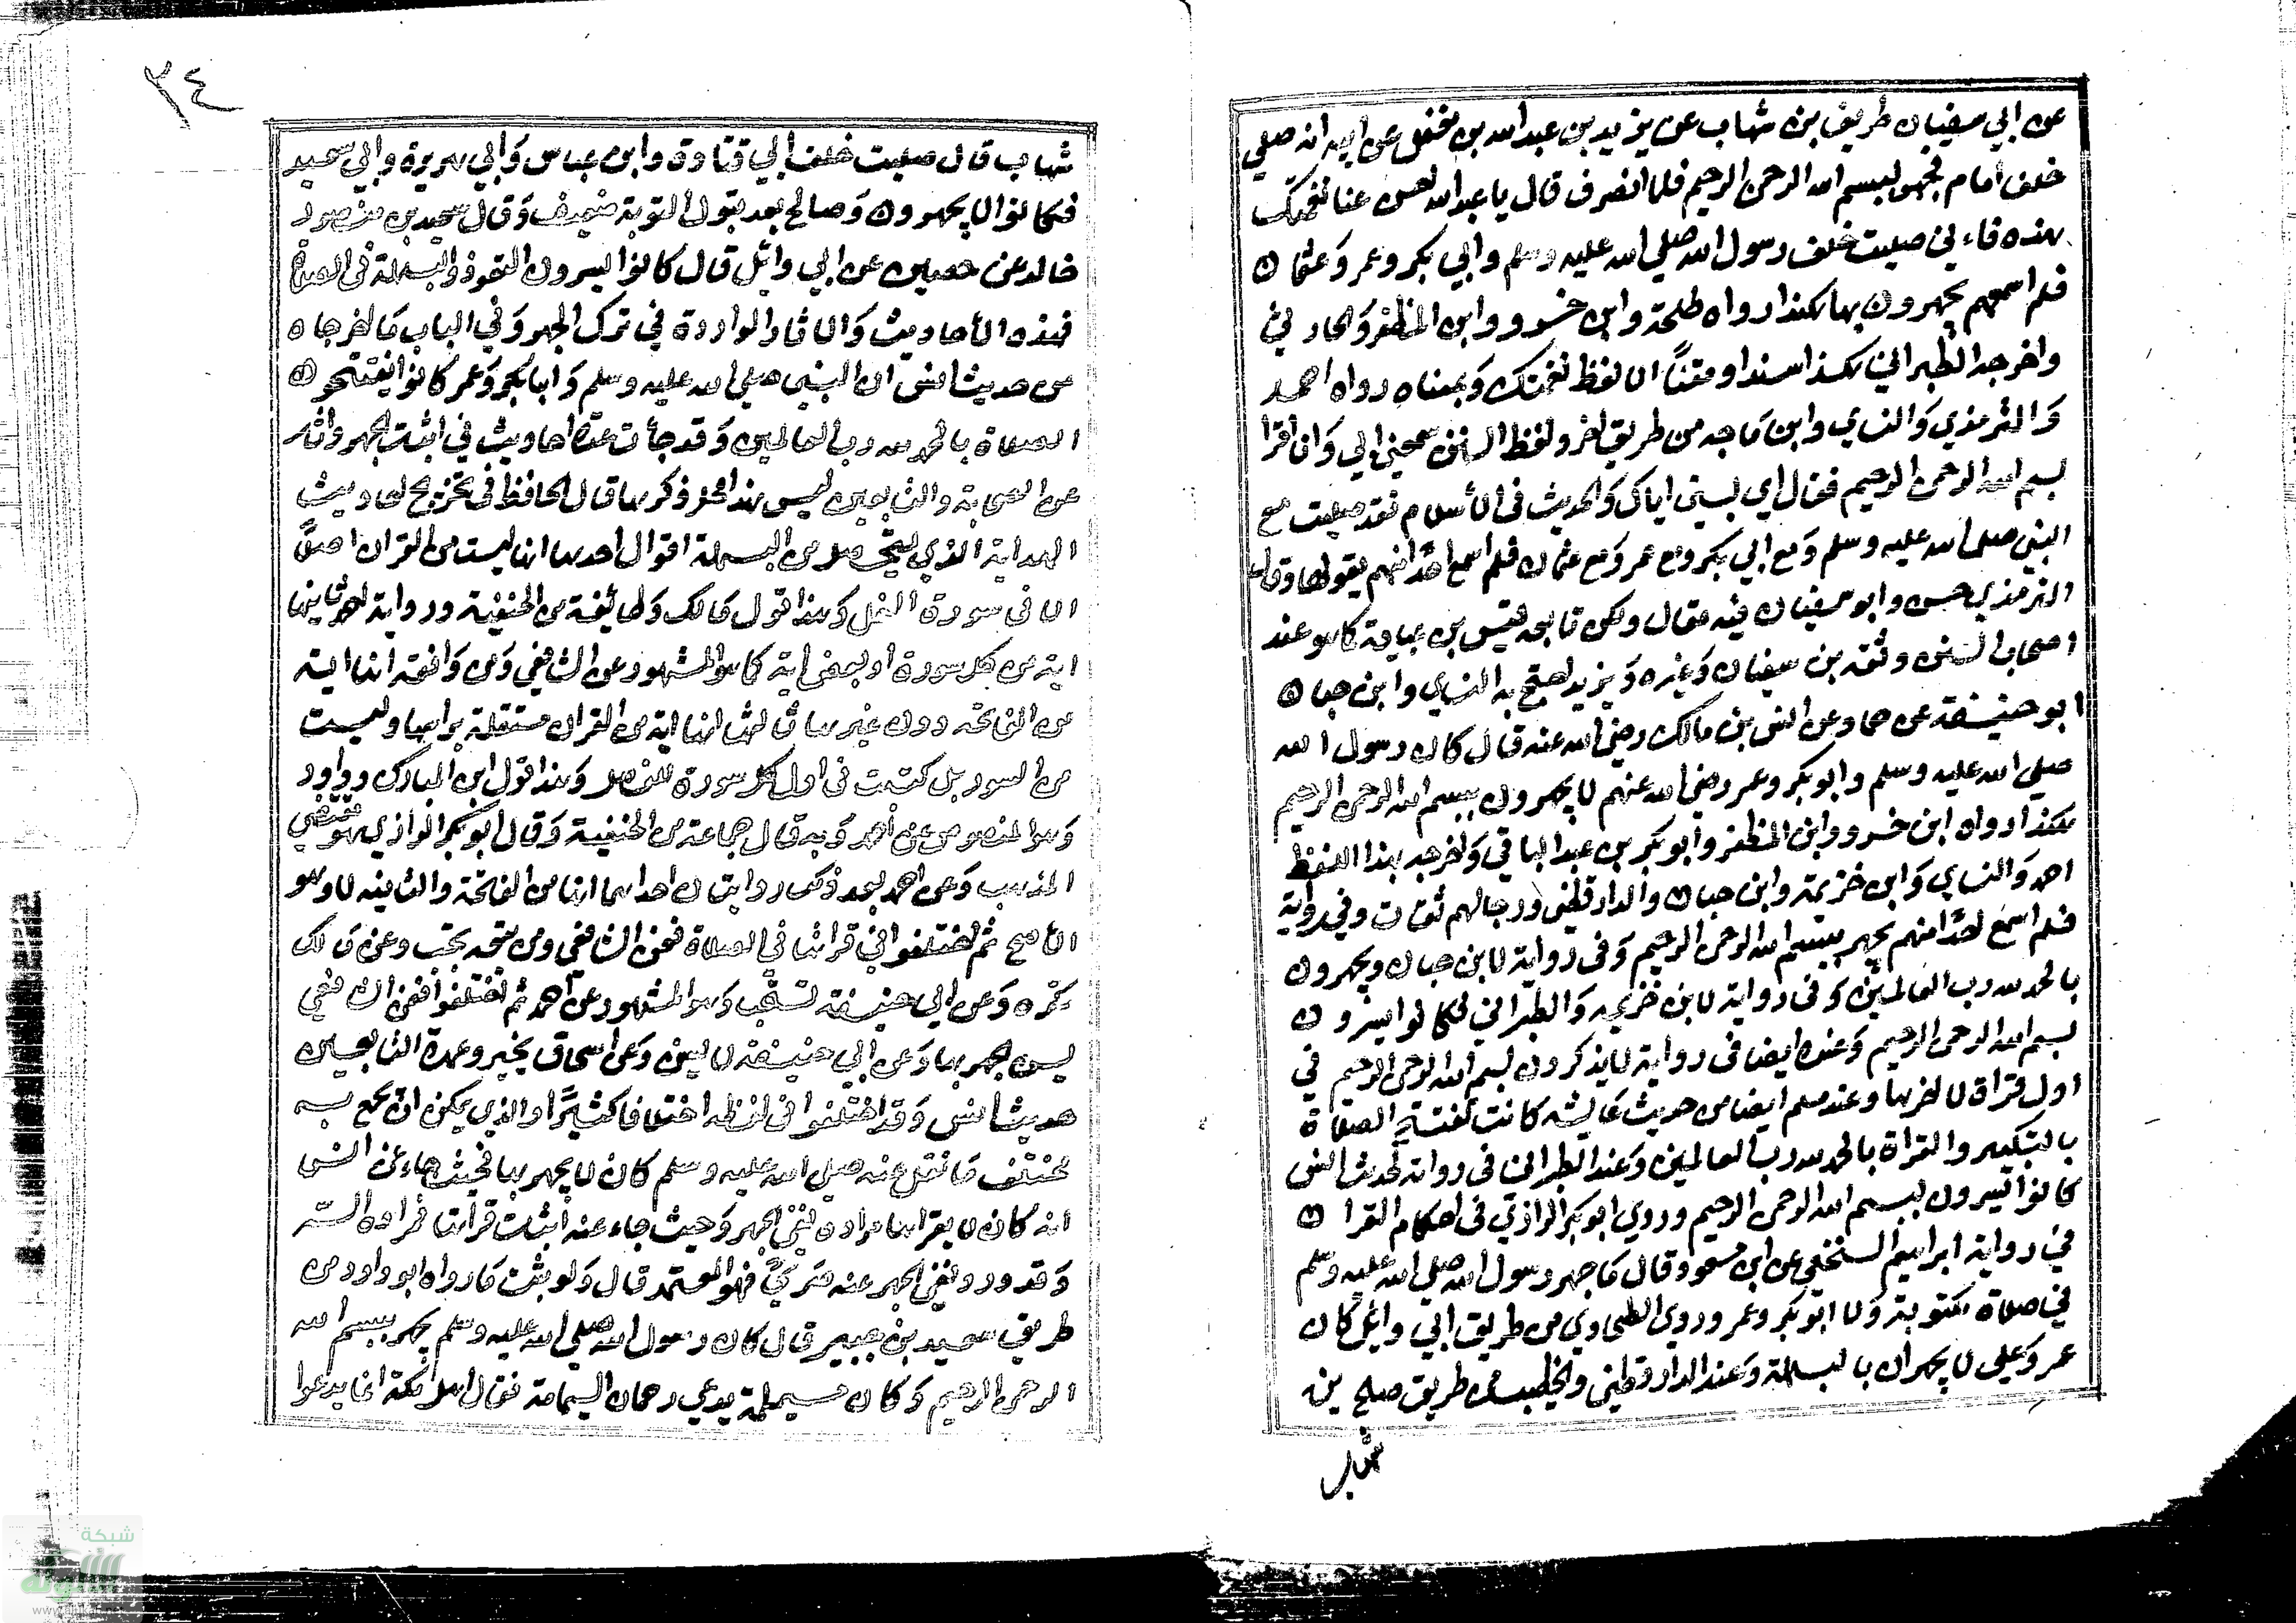 عن ابي سفيان طريف بن شهاب عن يزيد بن عبد الله بن مغفل عن ابيه انه صلى
خلف امام فجهر ببسم الله الرحمن الرحيم فلما انصرف قال يا عبد الله احبس عنا نغمتك
هذه فاني صليت خلف رسول الله صلى الله عليه وسلم وابي بكر وعمر وعثمان
فلم اسمعهم يجهرون بها هكذا رواه طلحة وابن خسرو وابن المظفر والحارثي
واخرجه الطبراني هكذا سندا ومتنا الا لفظ نغمتك وبمعناه رواه احمد
والترمذي والنساي وابن ماجه من طريق اخر ولفظ السنن سمعني ابي وانا اقرا
بسم الله الرحمن الرحيم فقال اي بني اياك والحديث في الاسلام فقد صليت مع
النبي صلى الله عليه وسلم ومع ابي بكر ومع عمر ومع عثمان فلم اسمع احدا منهم يقولها وقال
الترمذي حسن وابو سفيان فيه مقال ولكن تابعه قيس بن عباية كما هو عند
اصحاب السنن وثقه بن سفيان وغيره ويزيد احتج به النساي وابن حبان
ابو حنيفة عن حماد عن انس بن مالك رضي الله عنه قال كان رسول الله
صلى الله عليه وسلم وابو بكر وعمر رضي الله عنهم لا يجهرون ببسم الله الرحمن الرحيم
هكذا رواه ابن خسرو وابن المظفر وابو بكر بن عبد الباقي واخرجه بهذا اللفظ
احمد والنساي وابن خزيمة وابن حبان والدارقطني ورجالهم ثقات وفي رواية
فلم اسمع احدا منهم يجهر ببسم الله الرحمن الرحيم وفي رواية لابن حبان ويجهرون
بالحمد لله رب العالمين وفي رواية لابن خزيمة والطبراني فكانوا يسرون
بسم الله الرحمن الرحيم وعنده ايضا في رواية لا يذكرون بسم الله الرحمن الرحيم في
اول قراة لا اخرها وعند مسلم ايضا من حديث عايشه كانت تفتتح الصلاة
بالتكبير والقراة بالحمد لله رب العالمين وعند الطبراني في رواية لحديث انس
كانوا يسرون ببسم الله الرحمن الرحيم وروي ابو بكر الرازي في احكام القران
في رواية ابراهيم النخعي عن ابن مسعود قال ما جهر رسول الله صلى الله عليه وسلم
في صلاة مكتوبة ولا ابو بكر وعمر وروى الطحاوي من طريق ابي وايل كان
عمر وعلي لا يجهران بالبسملة وعند الدارقطني والخطيب من طريق صالح بن
٣٤
شهاب قال صليت خلف ابي قتادة وابن عباس وابي هريرة وابي سعيد
فكانوا لا يجهرون وصالح بعد قبول التوبة ضعيف وقال سعيد بن منصور
خالد عن حصين عن ابي وائل قال كانوا يسرون التعوذ والبسملة في الصلاة
فهذه الأحاديث والاثار الواردة في ترك الجهر وفي الباب ما اخرجاه
من حديث انس ان النبي صلى الله عليه وسلم وابا بكر وعمر كانوا يفتتحون
الصلاة بالحمد لله رب العالمين وقد جأت عدة احاديث في اثبات الجهر واثار
عن الصحابة والتابعين ليس هذا محل ذكرها قال الحافظ في تخريج احاديث
الهداية الذي يتحصل من البسملة اقوال احدها انها ليست من القران اصلا
الا في سورة النمل وهذا قول مالك وطائفة من الحنفية ورواية لاحمد ثانيها
اية من كل سورة او بعض اية كما هو المشهور عن الشافعي ومن وافقه انها اية
من الفاتحه دون غيرها ثالثها انها اية من القران مستقلة براسها وليست
من السور بل كتبت في اول كل سورة للفصل وهذا قول ابن المبارك وداود
وهو المنصوص عن احمد وبه قال جماعة من الحنفية وقال ابو بكر الرازي هو مقتضى
المذهب وعن احمد بعد ذلك روايتان احداهما انها من الفاتحة والثانيه لا وهو
الأصح ثم اختلفوا في قراتها في الصلاة فعن الشافعي ومن تبعه تجب وعن مالك
تكره وعن ابي حنيفة تستحب وهو المشهور عن احمد ثم اختلفوا فعن الشافعي
يسن الجهر بها وعن ابي حنيفة لا يسن وعن اسحاق يخير وعمدة التابعين
حديث انس وقد اختلفوا في لفظه اختلافا كثيرا والذي يمكن ان يجمع به
مختلف ما نقل عنه صلى الله عليه وسلم كان لا يجهر بها فحيث جاء عن انس
انه كان لا يقراها مراده نفي الجهر وحيث جاء عنه اثبات قراتها فمراده السر
وقد ورد نفي الجهر عنه صريحا فهو المعتمد قال ولو ثبت ما رواه ابو داود من
طريق سعيد بن جبير قال كان رسول الله صلى الله عليه وسلم يجهر ببسم الله
الرحمن الرحيم وكان مسيلمة يدعي رحمان اليمامة فقال اهل مكة انما يدعوا
شبكة
الألوكة